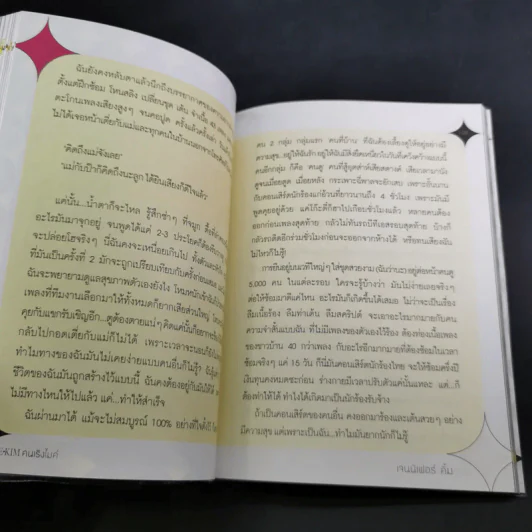 ฉันยังคงหลับตาแล้วนึกถึงบรรยากาศของ
ตั้งแต่ฝึกซ้อม โหนสลิง เปลี่ยนชุด เต้น จำเนื้อ
ตะโกนเพลงเสียงสูงๆ จนคอปูด ครั้งแล้วครั้งเล่า
ไม่ได้เจอหน้าเตี่ยกับแม่และทุกคนในบ้านนอกจาก
'คิดถึงแม่จังเลย'
'แม่กับป๊าก็คิดถึงนะลูก ได้ยินเสียงก็ดีใจแล้ว'
แค่นั้น...น้ำตาก็จะไหล รู้สึกซ่าๆ ที่จมูก
อะไรมันมาจุกอยู่ จนพูดได้แค่ 2-3 ประโยคก็ต้อง
จะปล่อยโฮจริงๆ นี่ฉันคงจะเหนื่อยเกินไป
ที่มันเป็นครั้งที่ 2 มักจะถูกเปรียบเทียบกับครั้งก่อนเสมอ
ฉันจะพยายามดูแลสุขภาพตัวเองยังไง โหมหนัก
เพลงที่ทีมงานเลือกมาให้ทั้งหมดก็ยากเสียส่วนใหญ่
คุยกับแขกรับเชิญอีก...ดูต้องตายแน่ๆ
กลับไปกอดเตี่ยกับแม่ก็ไม่ได้ เพราะเวลาจะนอนก็ยัง
ทำไมทางของฉันมันไม่เคยง่ายแบบคนอื่นก็ไม่รู้?
ชีวิตของฉันมันถูกสร้างไว้แบบนี้ ฉันคงต้องอยู่กับมันให้ได้
ไม่มีทางไหนให้ไปแล้ว แค่...ทำให้สำเร็จ
ฉันผ่านมาได้ แม้จะไม่สมบูรณ์ 100% อย่างที่ใจตั้งไว้
KIM คนเริงไมค์
คน 2 กลุ่ม กลุ่มแรก 'คนที่บ้าน' ที่ฉันต้องเลี้ยงดูให้อยู่อย่างมี
คนอีกกลุ่ม ก็คือ คนดู คนที่สู้อุตส่าห์เสียสตางค์ เสียเวลามานั่ง
ดูจนเมื่อยตูด เมื่อยหลัง กระเพาะฉี่พาลจะอักเสบ เพราะอั้นนาน
กับคอนเสิร์ตนักร้องแก่อ้วนที่ยาวนานถึง 4 ชั่วโมง เพราะมันมี
พูดคุยอยู่ด้วย แค่โก๊ะตี๋ก็ฮาไปเกือบชั่วโมงแล้ว หลายคนต้อง
ออกก่อนเพลงสุดท้าย กลัวไม่ทันรถบีทีเอสรอบสุดท้าย บ้างก็
กลัวรถติดอีกร่วมชั่วโมงก่อนจะออกจากห้างได้ หรือทนเสียงฉัน
ไม่ไหวก็ไม่รู้!
การยืนอยู่บนเวทีใหญ่ๆ ใส่ชุดสวยงาม (ฉันว่านะ) อยู่ต่อหน้าคนดู
5,000 คน ในแต่ละรอบ ใครจะรู้บ้างว่า มันไม่ง่ายเลยจริงๆ
ต่อให้ซ้อมมาดีแค่ไหน อะไรมันก็เกิดขึ้นได้เสมอ ไม่ว่าจะเป็นเรื่อง
ลืมเนื้อร้อง ลืมท่าเต้น ลืมสคริปต์ จะเอาอะไรมากมายกับคน
ความจำสั้นแบบฉัน ที่ไม่มีเพลงของตัวเองไว้ร้อง ต้องท่องเนื้อเพลง
ของชาวบ้าน 40 กว่าเพลง กับอะไรอีกมากมายที่ต้องซ้อมในเวลา
ซ้อมจริงๆ แค่ 15 วัน ก็นี่มันคอนเสิร์ตนักร้องไทย จะให้ซ้อมครึ่งปี
เงินทุนคงหมดซะก่อน ร่างกายมีเวลาปรับตัวแค่นั้นแหละ แต่...ก็
ต้องทำให้ได้ ทำไงได้เกิดมาเป็นนักร้องรับจ้าง
ถ้าเป็นคอนเสิร์ตของคนอื่น คงออกมาร้องและเต้นสวยๆ อย่าง
มีความสุข แต่เพราะเป็นฉัน...ทำไมมันยากนักก็ไม่รู้!
เจนนิเฟอร์ คิ้ม